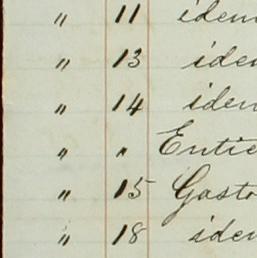 " 11 idem
" 13 idem
" 14 idem
" " Entie
" 15 Gasto
" 18 idem